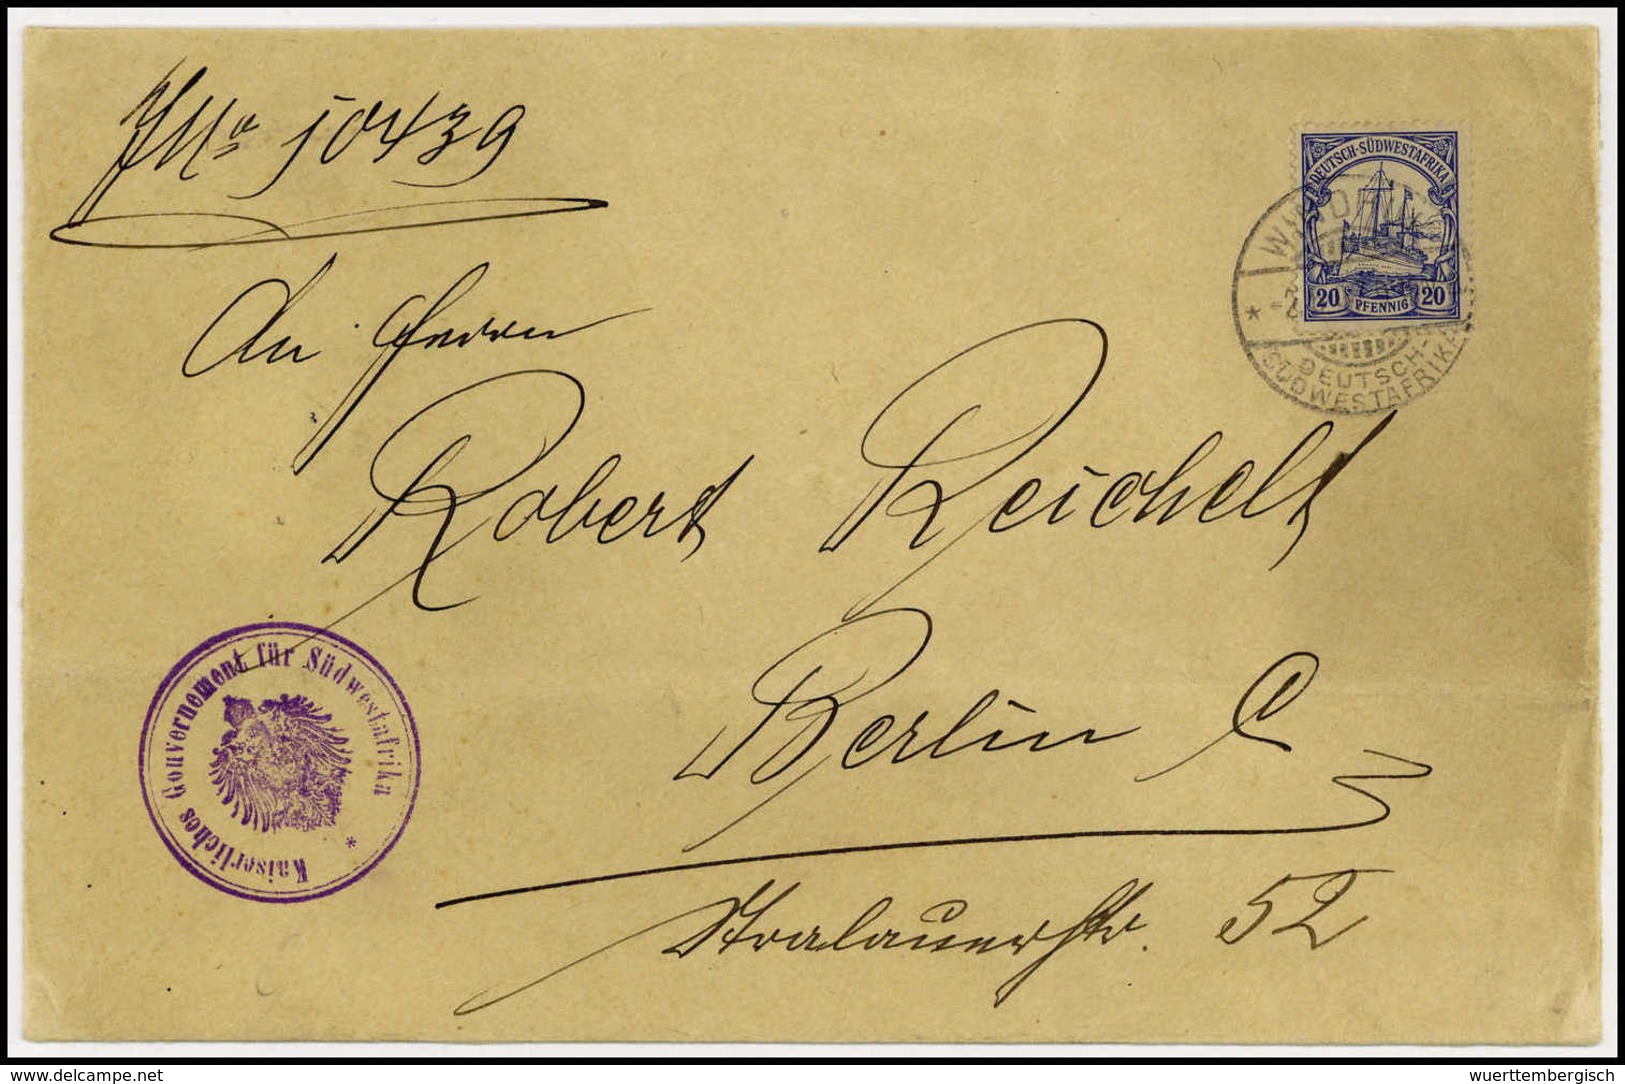 J No 10439
An Herrn
Robert Reichelt
Berlin C
Stralauerstr. 52
DEUTSCH-SÜDWESTAFRIKA
20 PFENNIG 20
DEUTSCH-
SÜDWESTAFRIKA
Kaiserliches Gouvernement für Südwestafrika
delcampe.net
wuerttembergisch